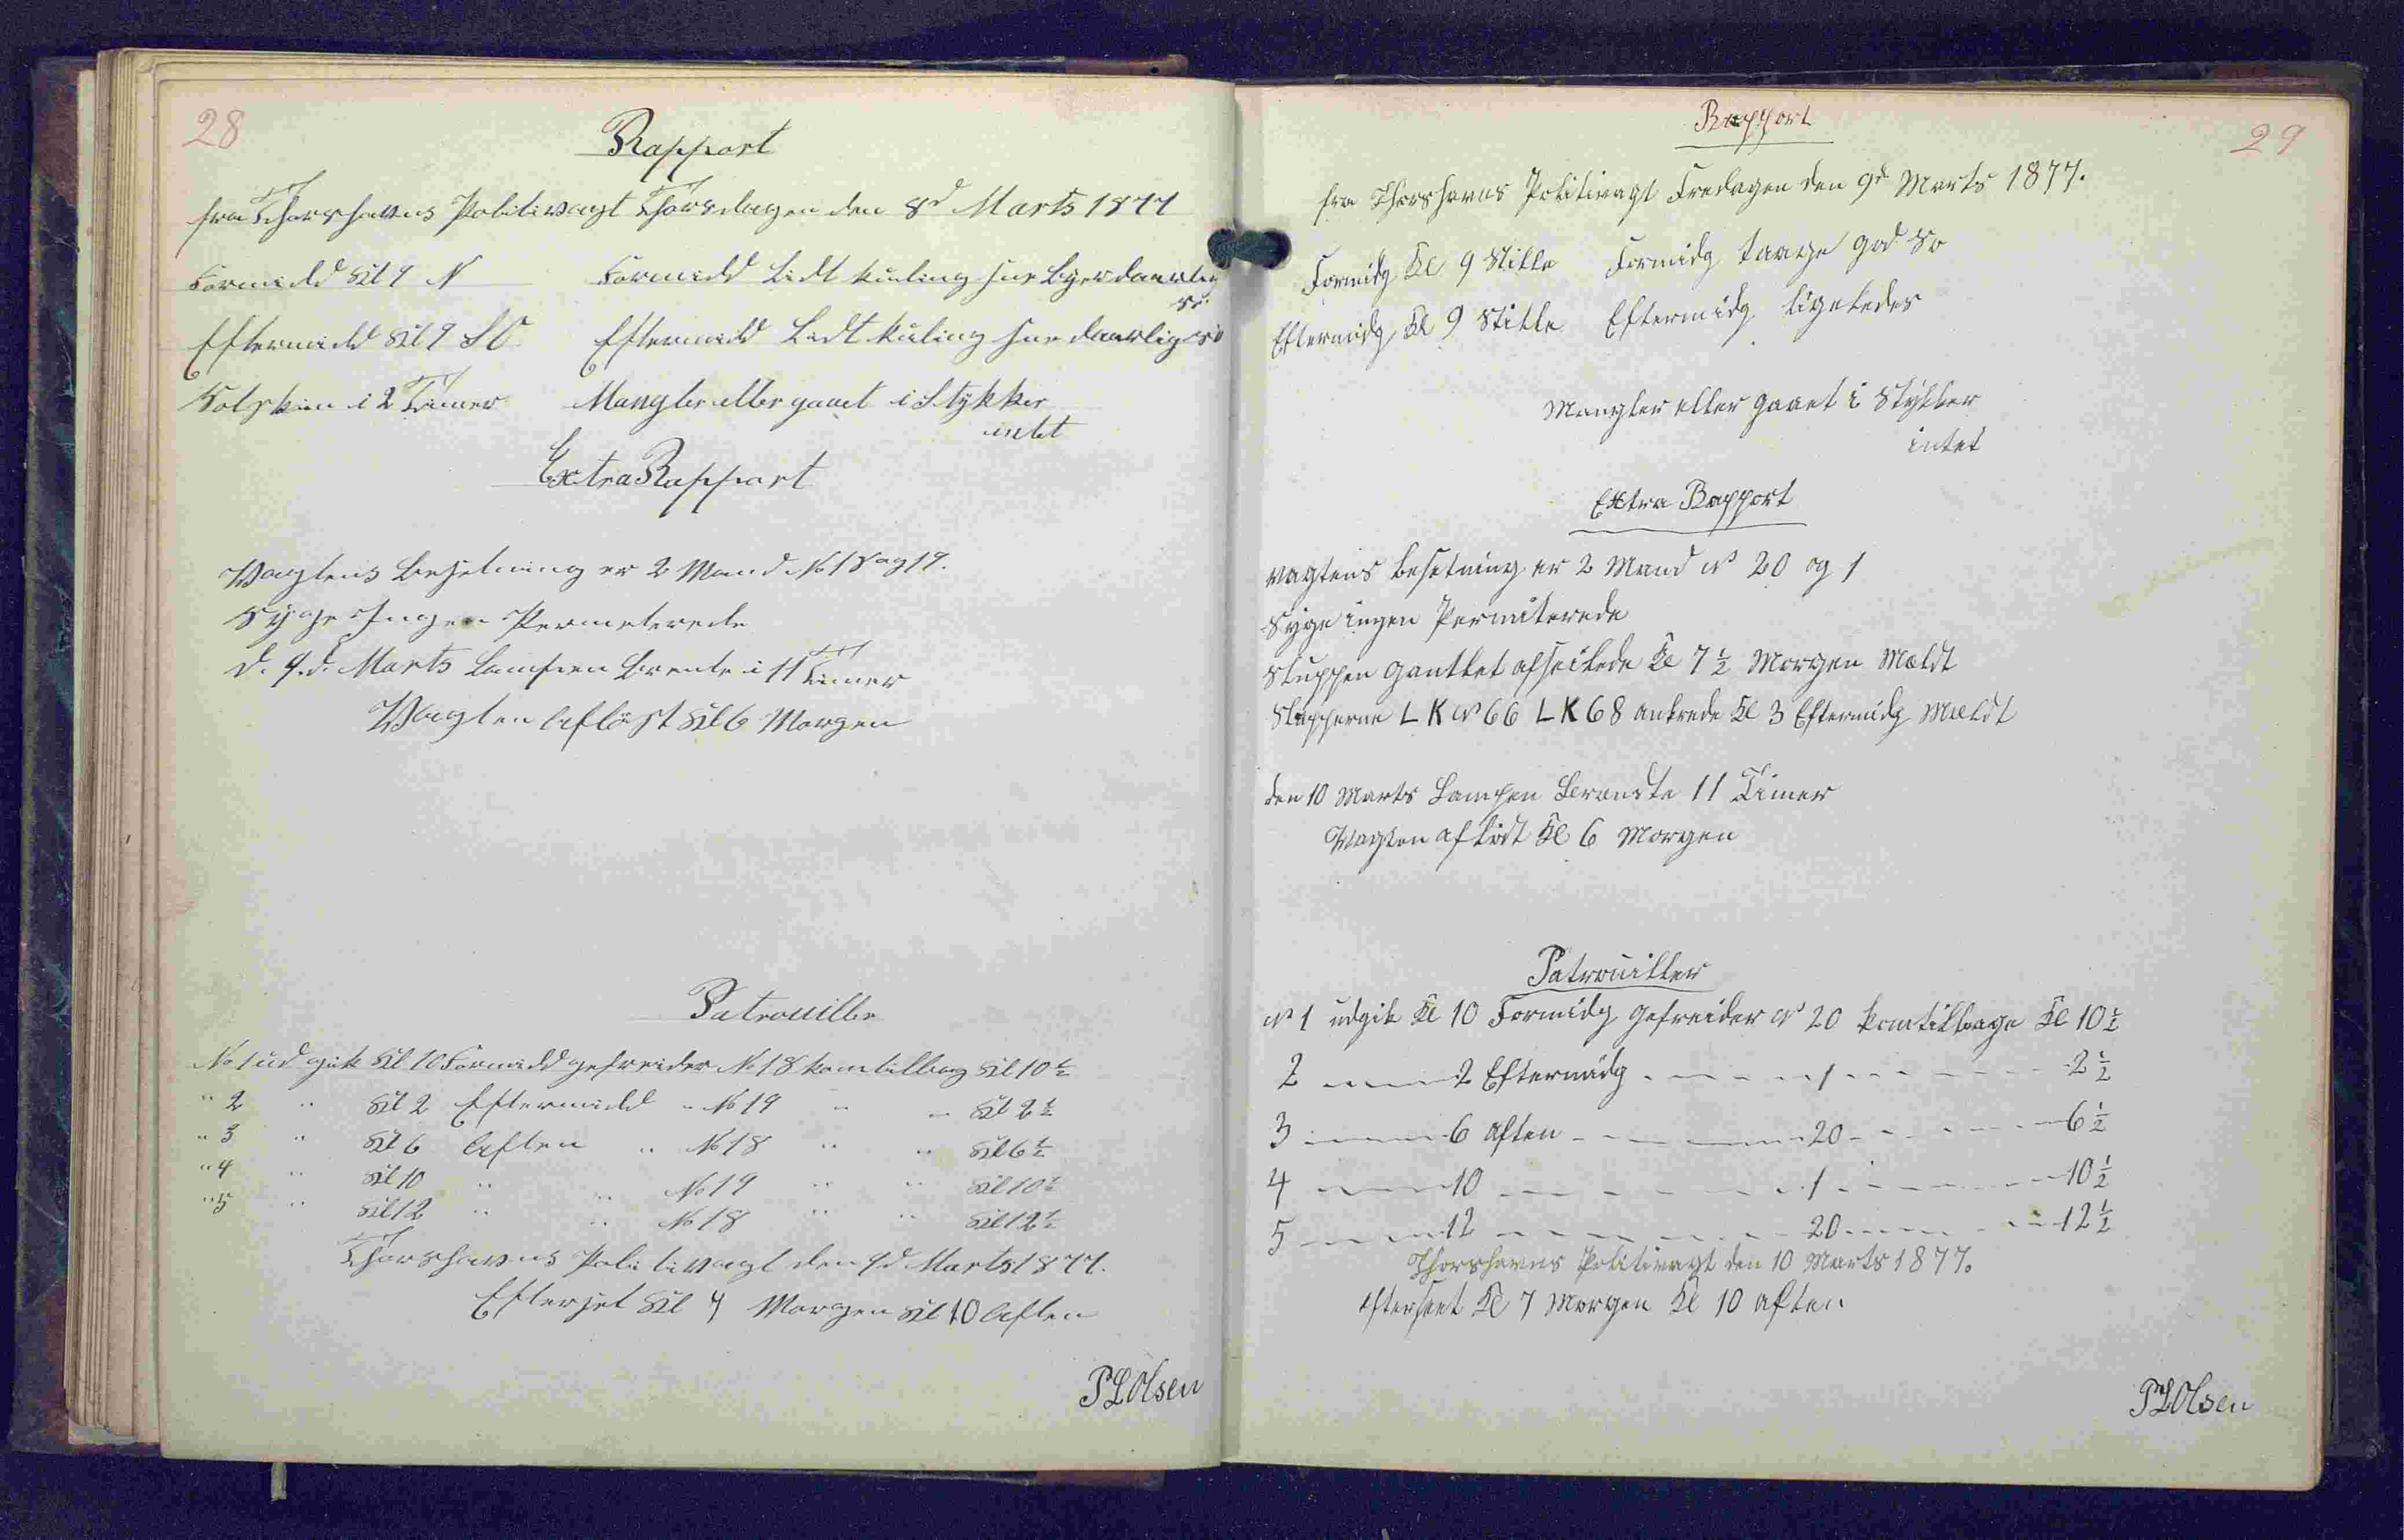 28
Rapport
fra Thorshavns Politivagt Thorsdagen den 8d Marts 1877
Formidd Kl 9 N Formidd Lidt kuling sne byer daarlig
sö
Eftermidd Kl 9 SO Eftermidd Lidt kuling sne daarlig sö
Solskin i 2 Timer Mangler eller gaaet i Stykker
intet
Extra Rapport
Vagtens Besetning er 2 Mand No 18 og 19.
Syge Ingen Permeterede
D. 9.d. Marts Lampen brente i 11 Timer
Vagten Aflöst Kl 6 Morgen
Patrouiller
No 1 ud gik Kl 10 Formidd gefreider No 18 kom tilbag Kl 10 ½
" 2 " Kl 2 Eftermidd " No 19 " " Kl 2 ½
" 3 " Kl 6 Aften " No 18 " " Kl 6 ½
" 4 " Kl 10 " " No 19 " " Kl 10 ½
" 5 " Kl 12 " " No 18 " " Kl 12 ½
Thorshavns Politivagt den 9d Marts 1877.
Efterset Kl 7 Morgen Kl 10 Aften
PLOlsen
29
Rapport
fra Thorshavns Politivagt Fredagen den 9de Marts 1877.
Formidg Kl 9 Stille Formidg taage god So
Eftermidg Kl 9 Stille Eftermidg ligeledes
Mangler eller gaaet i Stykker
intet
Extra Rapport
Vagtens besetning er 2 Mand No 20 og 1
Syge ingen Permiterede
Sluppen Gantlet afseilede Kl 7 ½ Morgen Mældt
Slupperne LK No 66 LK 68 ankrede Kl 3 Eftermidg Mældt
den 10 Marts Lampen Brændte 11 Timer
Vagten aflöst Kl 6 Morgen
Patrouiller
No 1 udgik Kl 10 Formidg gefreider No 20 kom tilbage Kl 10 ½
2 - - - 2 Eftermidg - - - 1 - - - 2 ½
3 - - - 6 Aften - - - 20 - - - 6 ½
4 - - - 10 - - - 1 - - - 10 ½
5 - - - 12 - - - 20 - - - 12 ½
Thorshavns Politivagt den 10 Marts 1877.
Efterseet Kl 7 Morgen Kl 10 aften
PLOlsen